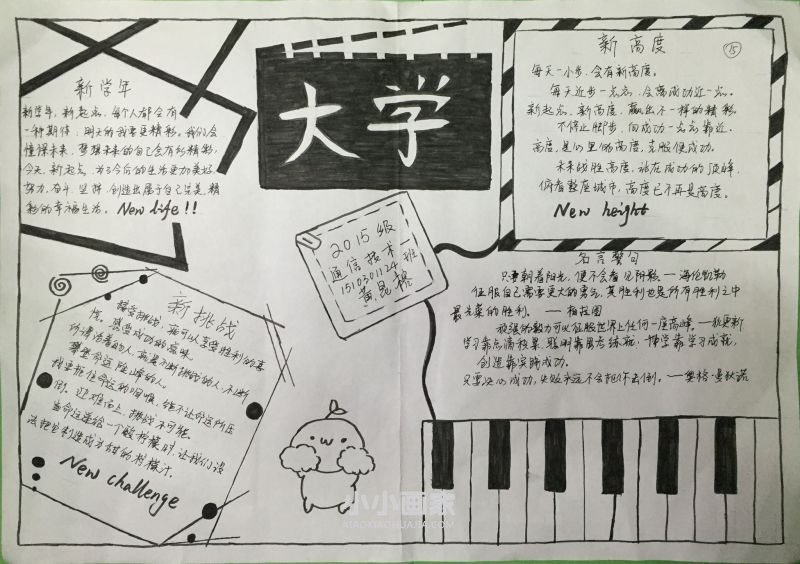 新学年
新学年,新起点,每个人都会有
一种期待,明天的我要更精彩。我们会
憧憬未来,梦想未来的自己会有多精彩,
今天,新起点,为了今后的生活更加美好,
努力,奋斗,坚持,创造出属于自己完美,精
彩的幸福生活。New life!!
大学
新高度
15
每天一小步,会有新高度。
每天近步一点点,会离成功近一点。
新起点,新高度,赢出不一样的精彩。
不停止脚步,向成功一点点靠近。
高度,是心里的高度,克服便成功。
未来战胜高度,站在成功的顶峰,
俯看整座城市,高度已不再是高度。
New height
2015级
通信技术
1510301124班
黄昆
新挑战
接受挑战,就可以享受胜利的喜
悦,感受成功的滋味。
所谓活着的人,就是不断挑战的人,不断
攀登命运险峰的人。
我要扼住命运的咽喉,绝不让命运所压
倒。迎难而上,挑战不可能。
当命运递给一个酸柠檬时,让我们设
法把它制造成甜的柠檬汁。
New challenge
名言警句
只要朝着阳光,便不会看见阴影——海伦凯勒
征服自己需要更大的勇气,其胜利也是所有胜利之中
最光荣的胜利。——柏拉图
顽强的毅力可以征服世界上任何一座高峰。——狄更斯
学习靠点滴积累
博学靠学习成就,
创造靠实践成功。
只要决心成功,失败永远不会把你击倒。——奥格·曼狄诺
小小画家
XIAOXIAOHUAJIA.COM